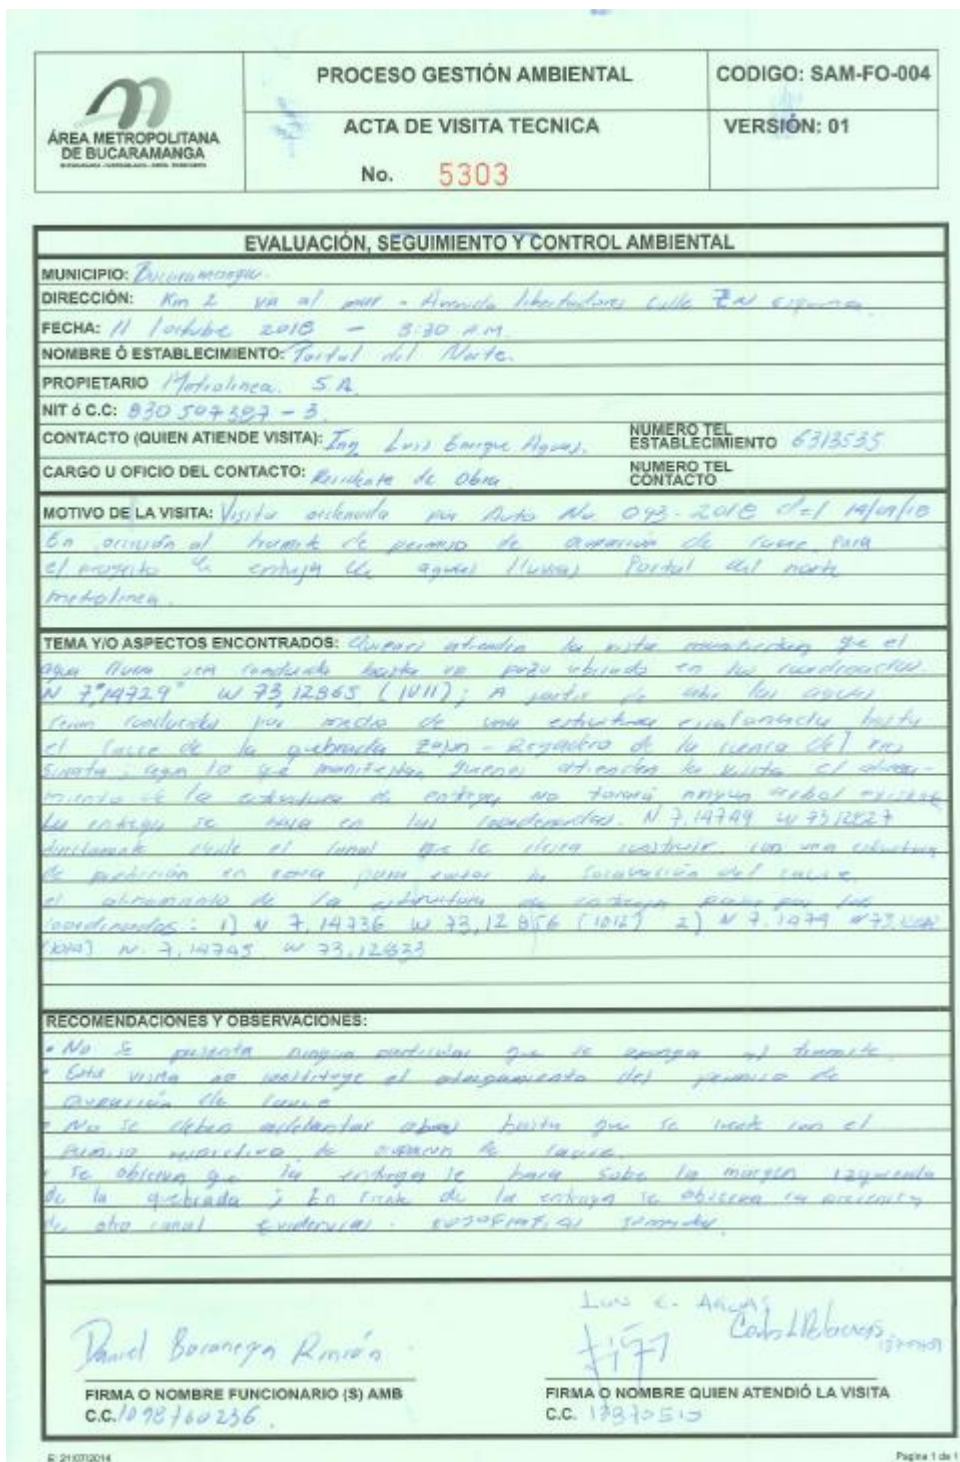 PROCESO GESTIÓN AMBIENTAL
CODIGO: SAM-FO-004
ÁREA METROPOLITANA
DE BUCARAMANGA
ACTA DE VISITA TECNICA
VERSIÓN: 01
No. 5303
EVALUACIÓN, SEGUIMIENTO Y CONTROL AMBIENTAL
MUNICIPIO: Bucaramanga.
DIRECCIÓN: Km 2 via al mar - Avenida libertadores Calle esquina
FECHA: 11 / octubre 2018 - 8:30 A.M.
NOMBRE Ó ESTABLECIMIENTO: Portal del Norte.
PROPIETARIO Metrolinea. S.A.
NIT ó C.C: 830 507 387 - 3
CONTACTO (QUIEN ATIENDE VISITA): Ing Luis Enrique Aguas. NUMERO TEL ESTABLECIMIENTO 6313535
CARGO U OFICIO DEL CONTACTO: Residente de Obra NUMERO TEL CONTACTO
MOTIVO DE LA VISITA: Visita ordenada por Auto No 093-2018 del
En al tramite de permiso de ocupación de cauce para
el de entrega de aguas lluvias Portal del norte
metrolinea.
TEMA Y/O ASPECTOS ENCONTRADOS: Quienes atienden la visita manifiestan que el
agua lluvia sera conducida hasta un pozo ubicado en las coordenadas
N 7,14729 W 73,12865 (1011); A partir de ahi las aguas
seran conducidas por medio de una estructura escalonada hasta
el cauce de la quebrada - Regadero de la cuenca del rio
Surata, segun lo que manifiestan quienes atienden la visita el
de la estructura de entrega no tocará ningun arbol
La entrega se hara en las coordenadas. N 7,14749 W 73,12827
directamente desde el canal que se desea construir, con una estructura
de para evitar la socavación del cauce.
el alineamiento de la estructura de entrega pasa por las
coordenadas: 1) N 7,14736 W 73,12856 (1012) 2) N 7.1474
N. 7,14745 W 73,12833
RECOMENDACIONES Y OBSERVACIONES:
• No se presenta ningun particular que se oponga al tramite.
• Esta visita no constituye el otorgamiento del permiso de
ocupación de cauce
• No se deben adelantar obras hasta que se cuente con el
permiso respectivo de ocupación de cauce.
• Se observa que la entrega se hara sobre la margen izquierda
de la quebrada; En frente de la entrega se observa la presencia
de otro canal
Daniel Rincón
Luis E. Aguas
FIRMA O NOMBRE FUNCIONARIO (S) AMB
C.C.
FIRMA O NOMBRE QUIEN ATENDIÓ LA VISITA
C.C.
E: 21/07/2014
Pagina 1 de 1